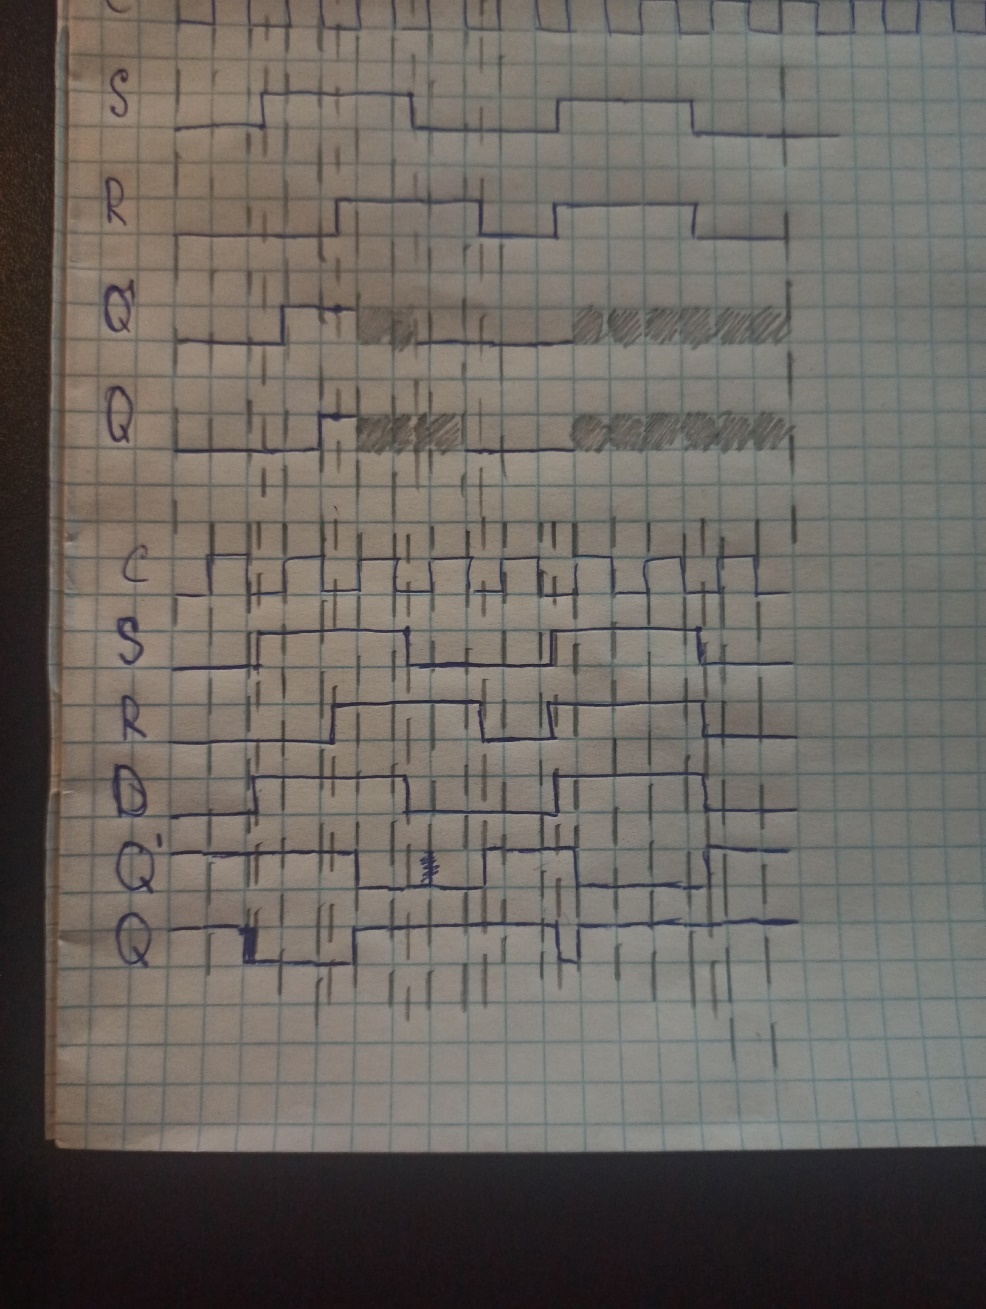 C
S
R
Q'
Q
C
S
R
D
Q'
Q